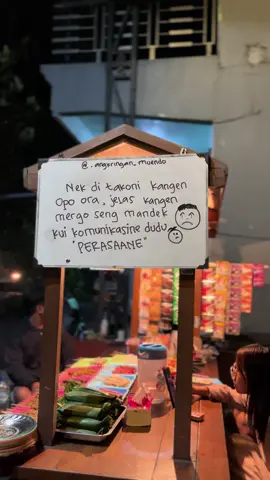 @_angkringan_muendo
Nek di takoni kangen
opo ora, jelas kangen
mergo seng mandek
kui komunikasine dudu
"PERASAANE"